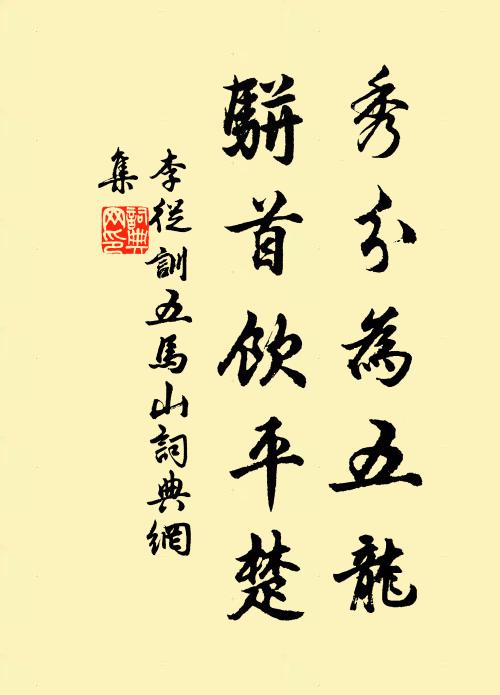 秀分為五龍
駢首飲平楚
李從訓五馬山詞典網
集
詞典
网印